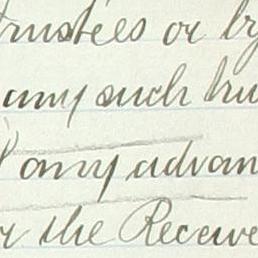 trustees or by
any such tru
any advan
the Receive